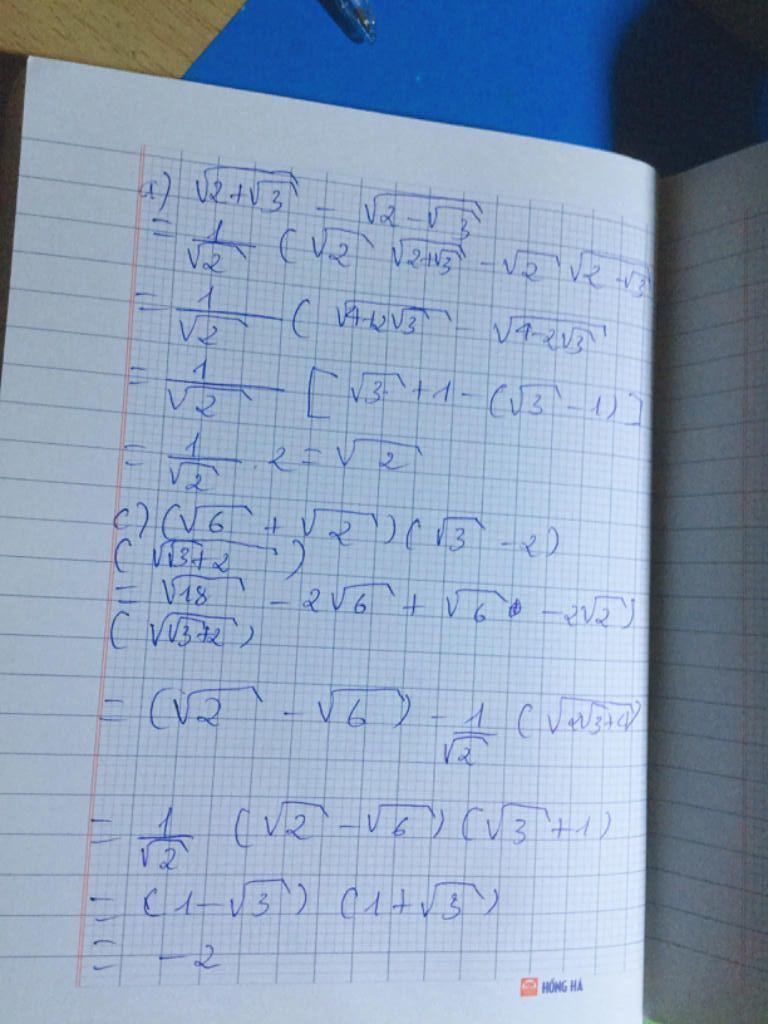 a) √(2+√3) - √(2-√3)
= 1/√2 (√2 √(2+√3) - √2 √(2-√3)
= 1/√2 ( √(4+2√3) - √(4-2√3)
= 1/√2 [ √3 + 1 - (√3 - 1) ]
= 1/√2 . 2 = √2
c) (√6 + √2)(√3 - 2)
( √(√3+2) )
= √18 - 2√6 + √6 - 2√2)
( √(√3+2) )
= (√2 - √6) - 1/√2 ( √(2√3+4)
= 1/√2 (√2 - √6)(√3 + 1)
= (1-√3) (1+√3)
= -2
HỒNG HÀ